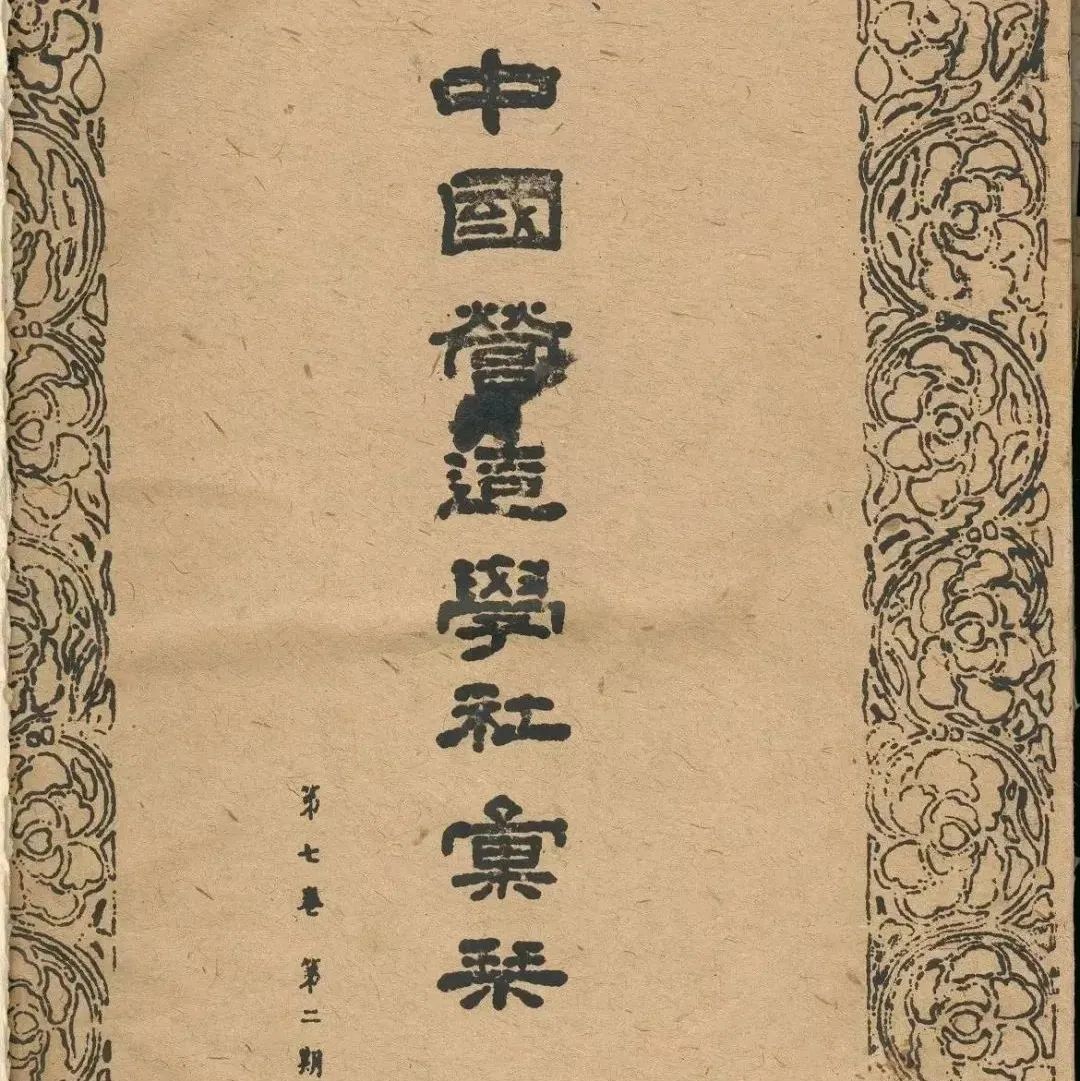 中國營造學社彙栞
第七卷第二期